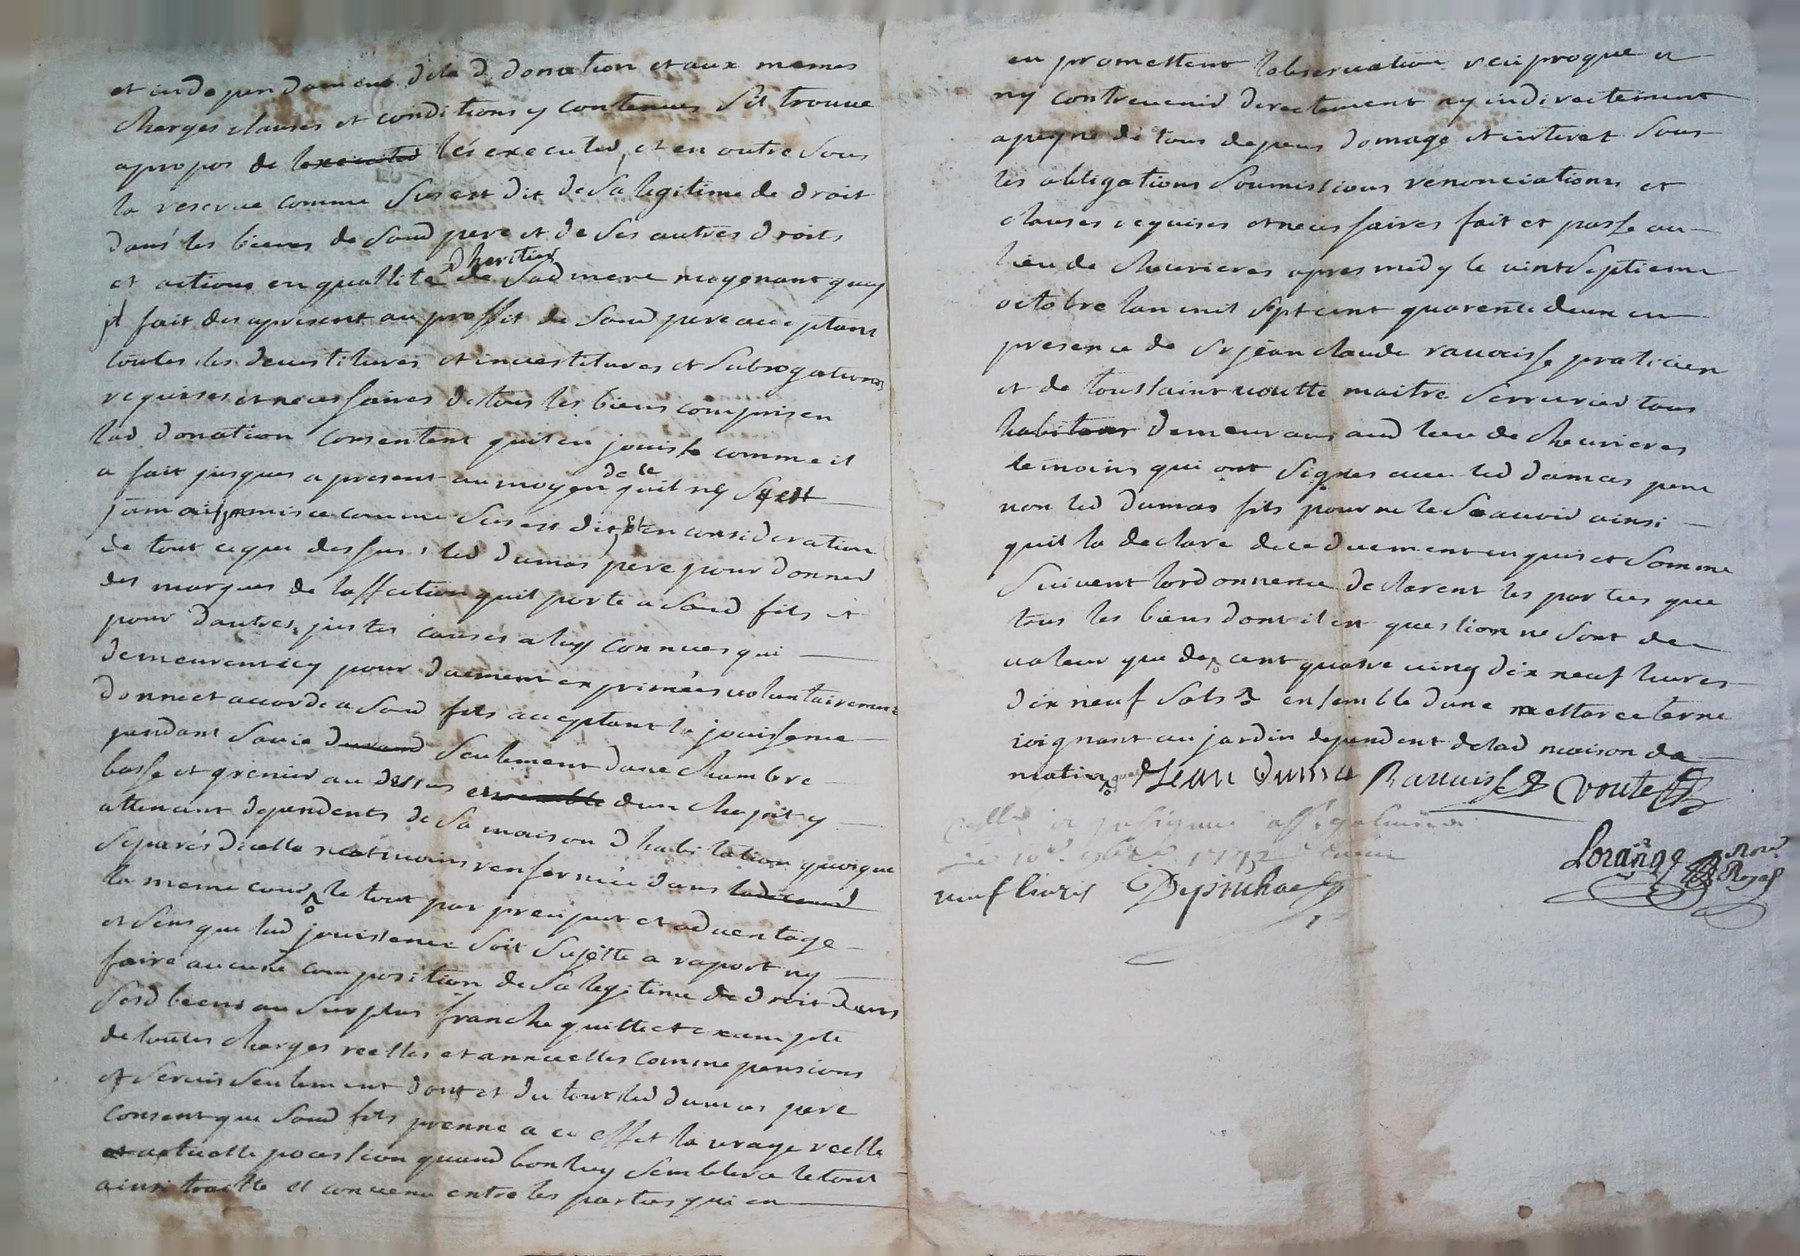 et independament dela d. donation et aux memes
charges clauses et conditions y contenues sil trouve
apropos de lexecuter les executer, et en outre sous
la reserve comme sus est dit de sa legitime de droit
dans les biens de sond pere et de ses autres droits
et actions en quallité d'heritier de sad mere moyenant quoy
il fait des apresent au proffit de sond pere acceptant
toutes les devestitures et investitures et subrogations
requises et necessaires de tous les biens compris en
lad donation consentent quil en jouisse comme il
a fait jusques a present au moyen de ce quil ny s'est
jamais immisce comme sus est dit et en consideration
de tout ce que dessus, led dumas pere pour donner
des marques de laffection quil porte a sond fils et
pour dautres justes causes a luy connues qui
demeurent icy pour duement exprimées volontairement
donne et accorde a sond fils acceptant la jouissence
pendant sa vie durand seulement dune chambre
basse et grenier au dessus ensemble dun chapit y
attenant dependents de sa maison d'habitation quoique
separés dicelle neatmoins renfermée dans
la meme cour le tout par preciput et adventage
et sens que lad jouissence soit sujette a raport ny
faire aucune composition de sa legitime de droit dans
sesd biens au surplus franche quitte et exempte
de toutes charges reelles et annuelles comme pensions
et servis seulement dont et du tout led dumas pere
consent que sond fils prenne a ce effet la vraye reelle
et actuelle pocession quand bon luy semblera le tout
ainsi traitté et convenu entre les parties qui en
en promettent lobservation reciproque et
ny contrevenir directement ny indirectement
a peyne de tous depens domage et interet sous
les obligations soumissions renonciations et
clauses requises et necessaires fait et passe au
lieu de chevrieres apres midy le vintseptieme
octobre lan mil sept cent quarente deux en
presence de sr jean claude ravaisse praticien
et de toussaint voutte maitre serrurier tous
habitans demeurans aud lieu de chevrieres
temoins qui ont signes avec led dumas pere
non led dumas fils pour ne le scavoir ainsi
quil la declare de ce duement enquis et somme
suivent lordonnence declarent les parties que
tous les biens dont il est question ne sont de
valeur que de cent quatre ving dix neuf livres
dix neuf sols ensemble dune
joignant au jardin dependent de lad maison de
Jean Duma Ravaisse Voute
Lorange Nore Royal
1742
neuf livres